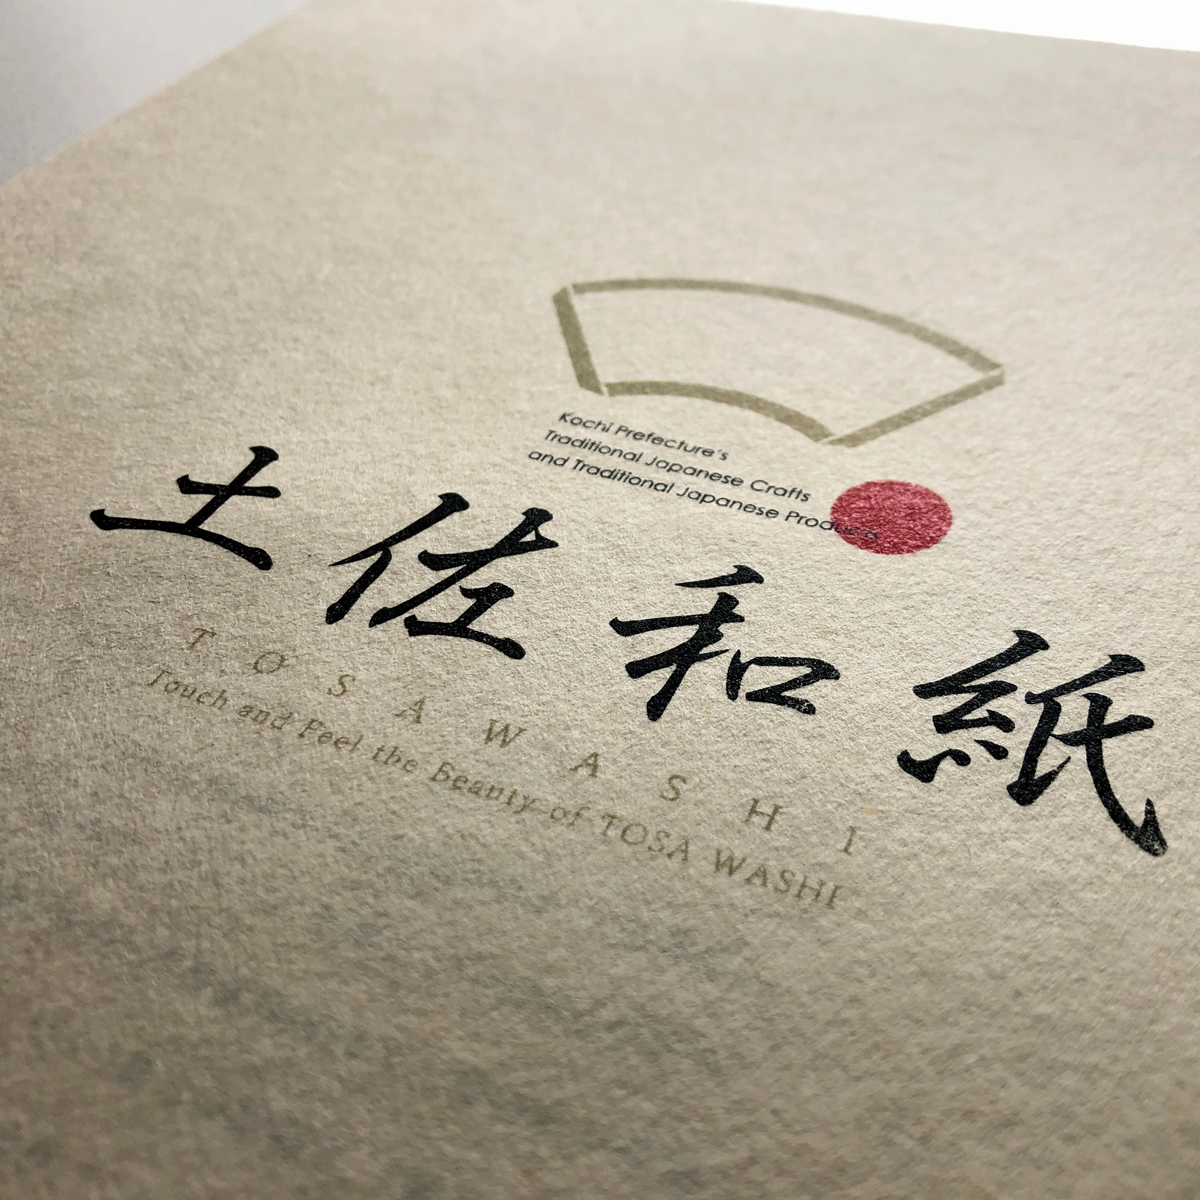 Kochi Prefecture's
Traditional Japanese Crafts
and Traditional Japanese Products
土佐和紙
TOSAWASHI
Touch and Feel the Beauty of TOSA WASHI